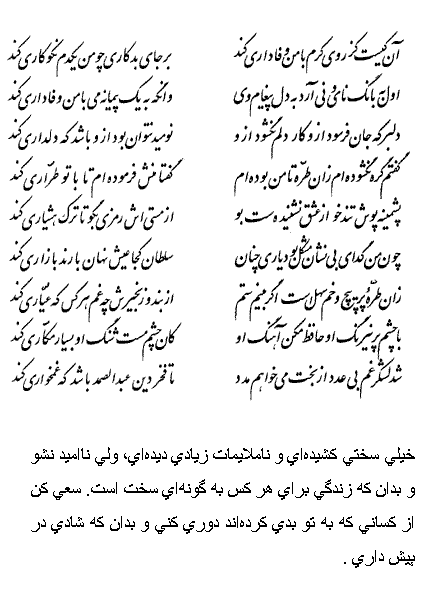 آن کیست کز روی کرم با من وفاداری کند بر جای بدکاری چو من یکدم نکوکاری کند
اول به بانگ نای و نی آرد به دل پیغام وی وانگه به یک پیمانه می با من وفاداری کند
دلبر که جان فرسود از و کار دلم نگشود از و نومید نتوان بود از و باشد که دلداری کند
گفتم گره نگشوده ام زان طره تا من بوده ام گفتا منش فرموده ام تا با تو طراری کند
پشمینه پوش تندخو از عشق نشنیده ست بو از مستی اش رمزی بگو تا ترک هشیاری کند
چون من گدای بی نشان مشکل بود یاری چنان سلطان کجا عیش نهان با رند بازاری کند
زان طرهٔ پر پیچ و خم سهل است اگر بینم ستم از بند و زنجیرش چه غم هر کس که عیاری کند
با چشم پر نیرنگ او حافظ مکن آهنگ او کان چشم مست شنگ او بسیار مکاری کند
شد لشگر غم بی عدد از بخت می خواهم مدد تا فخر دین عبدالصمد باشد که غمخواری کند
خيلي سختي كشيده‌اي و ناملايمات زيادي ديده‌اي، ولي نااميد نشو
و بدان كه زندگي براي هر كس به گونه‌اي سخت است. سعي كن
از كساني كه به تو بدي كرده‌اند دوري كني و بدان كه شادي در
پيش داري .